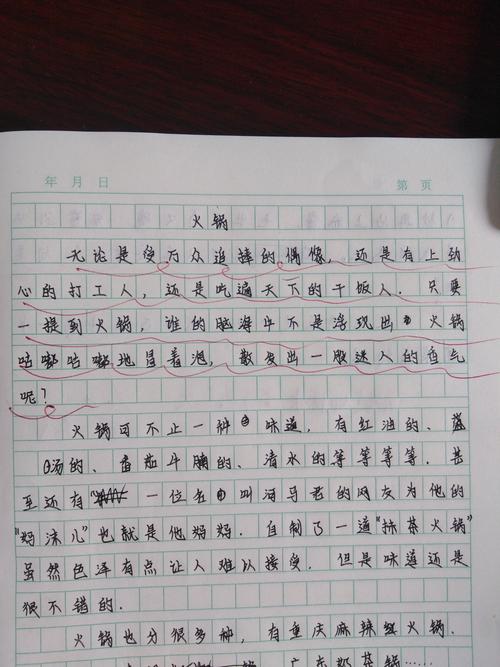 年 月 日 第 页
火锅
无论是受万众追捧的偶像，还是有上劲
心的打工人，还是吃遍天下的干饭人．只要
一提到火锅，谁的脑海中不是浮现出 火锅
咕嘟咕嘟地冒着泡，散发出一股迷人的香气
呢？
火锅可不止一种 味道，有红油的、
汤的、番茄牛腩的、清水的等等等等．甚
至还有 一位名叫河马君的网友为他的
"妈沫儿"也就是他妈妈．自制了一道"抹茶火锅"
虽然色泽有点让人难以接受．但是味道还是
很不错的．
火锅也分很多种，有重庆麻辣火锅
广东 茶锅……